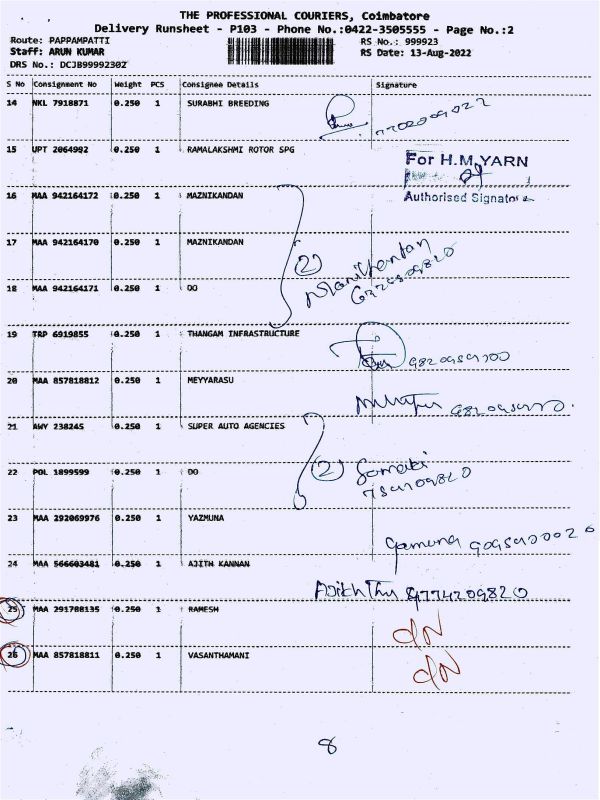 THE PROFESSIONAL COURIERS, Coimbatore
Delivery Runsheet - P103 - Phone No.:0422-3505555 - Page No.:2
Route: PAPPAMPATTI
RS No.: 999923
Staff: ARUN KUMAR
RS Date: 13-Aug-2022
DRS No.: DCJB9999230Z
S No Consignment No Weight PCS Consignee Details Signature
14 NKL 7918871 0.250 1 SURABHI BREEDING
15 UPT 2064992 0.250 1 RAMALAKSHMI ROTOR SPG
For H.M.YARN
Authorised Signator
16 MAA 942164172 0.250 1 MAZNIKANDAN
17 MAA 942164170 0.250 1 MAZNIKANDAN
2
Manikandan
18 MAA 942164171 0.250 1 DO
19 TRP 6919855 0.250 1 THANGAM INFRASTRUCTURE
20 MAA 857818812 0.250 1 MEYYARASU
21 AWY 238245 0.250 1 SUPER AUTO AGENCIES
22 POL 1899599 0.250 1 DO
2
23 MAA 292069976 0.250 1 YAZMUNA
Yamuna
24 MAA 566603481 0.250 1 AJITH KANNAN
9774209820
25 MAA 291788135 0.250 1 RAMESH
D/N
26 MAA 857818811 0.250 1 VASANTHAMANI
D/N
8